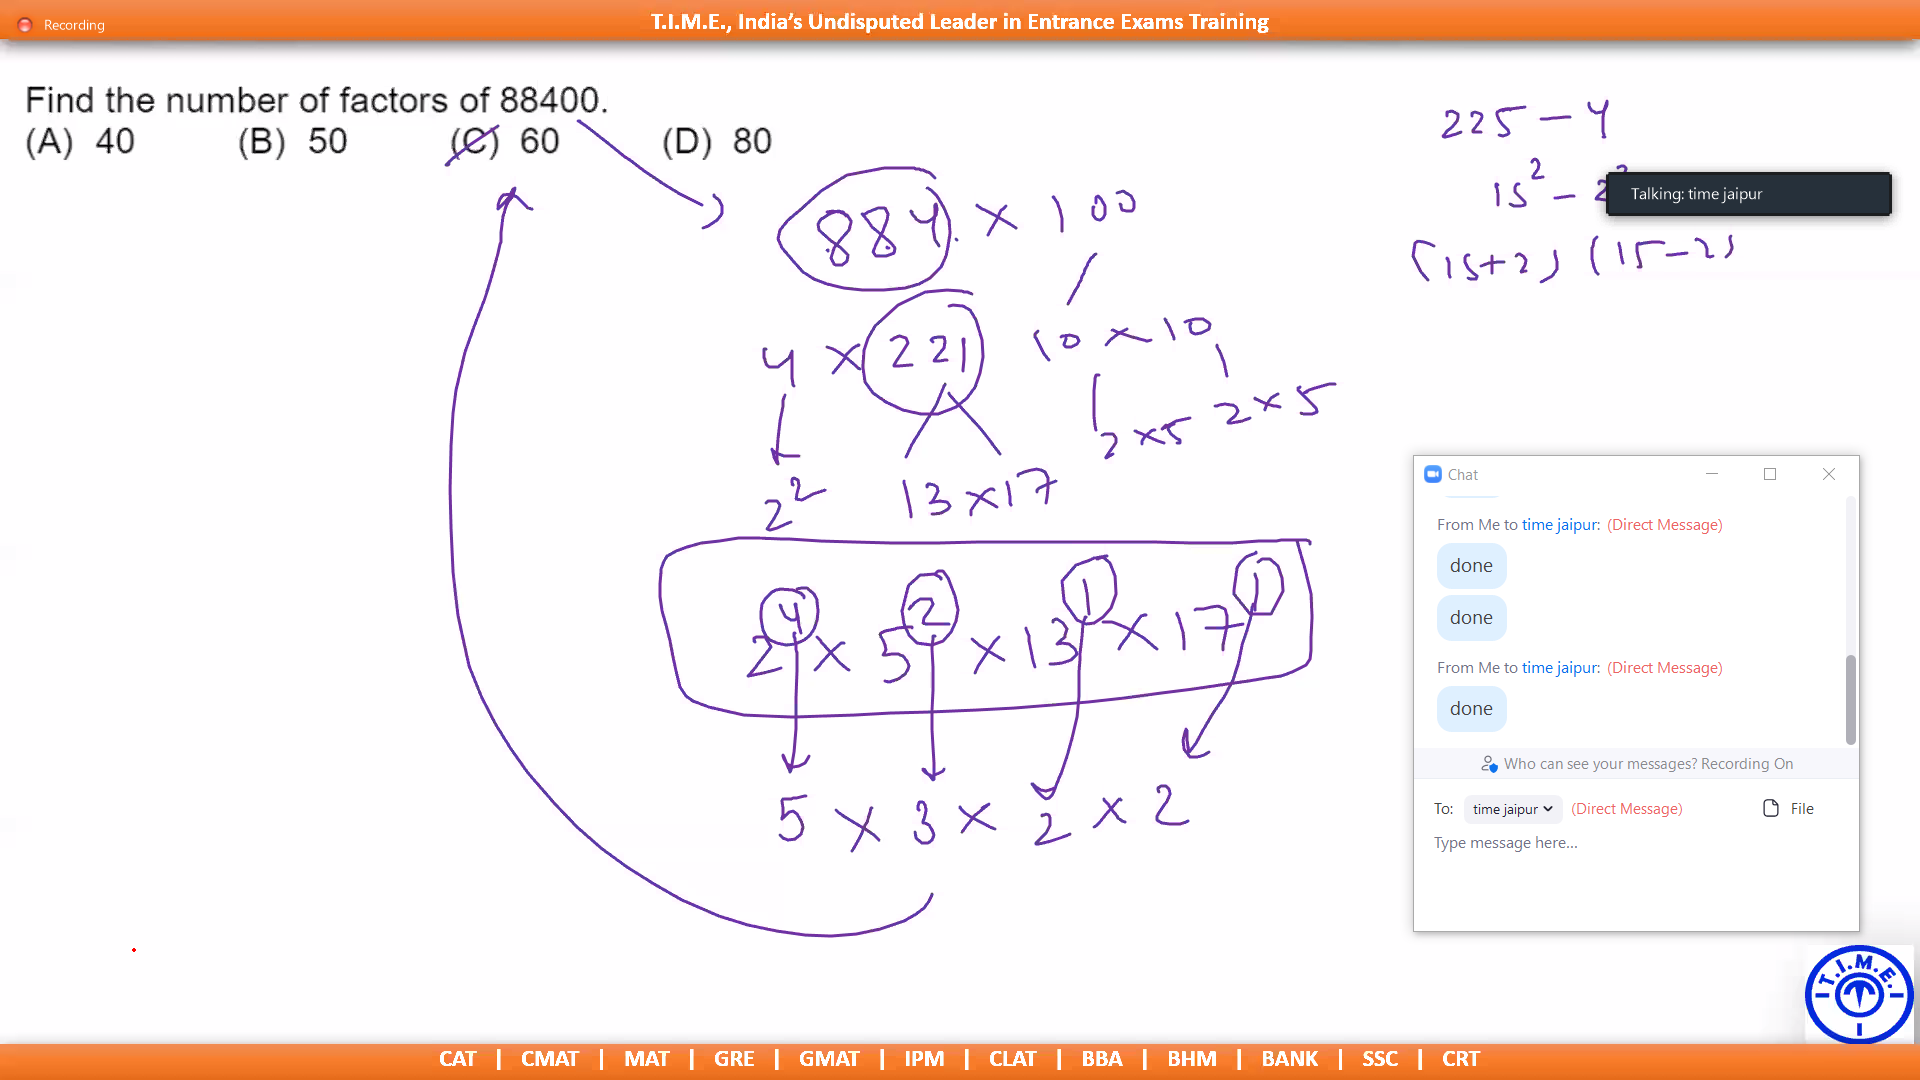 Recording
T.I.M.E., India's Undisputed Leader in Entrance Exams Training
Find the number of factors of 88400.
(A) 40 (B) 50 (C) 60 (D) 80
884 × 100
4 × 221 10 × 10
2 × 5 2 × 5
2² 13 × 17
2⁴ × 5² × 13¹ × 17¹
5 × 3 × 2 × 2
225 − 4
15² − 2²
(15+2) (15−2)
Talking: time jaipur
Chat
From Me to time jaipur: (Direct Message)
done
done
From Me to time jaipur: (Direct Message)
done
Who can see your messages? Recording On
To: time jaipur (Direct Message) File
Type message here...
T.I.M.E.
CAT | CMAT | MAT | GRE | GMAT | IPM | CLAT | BBA | BHM | BANK | SSC | CRT